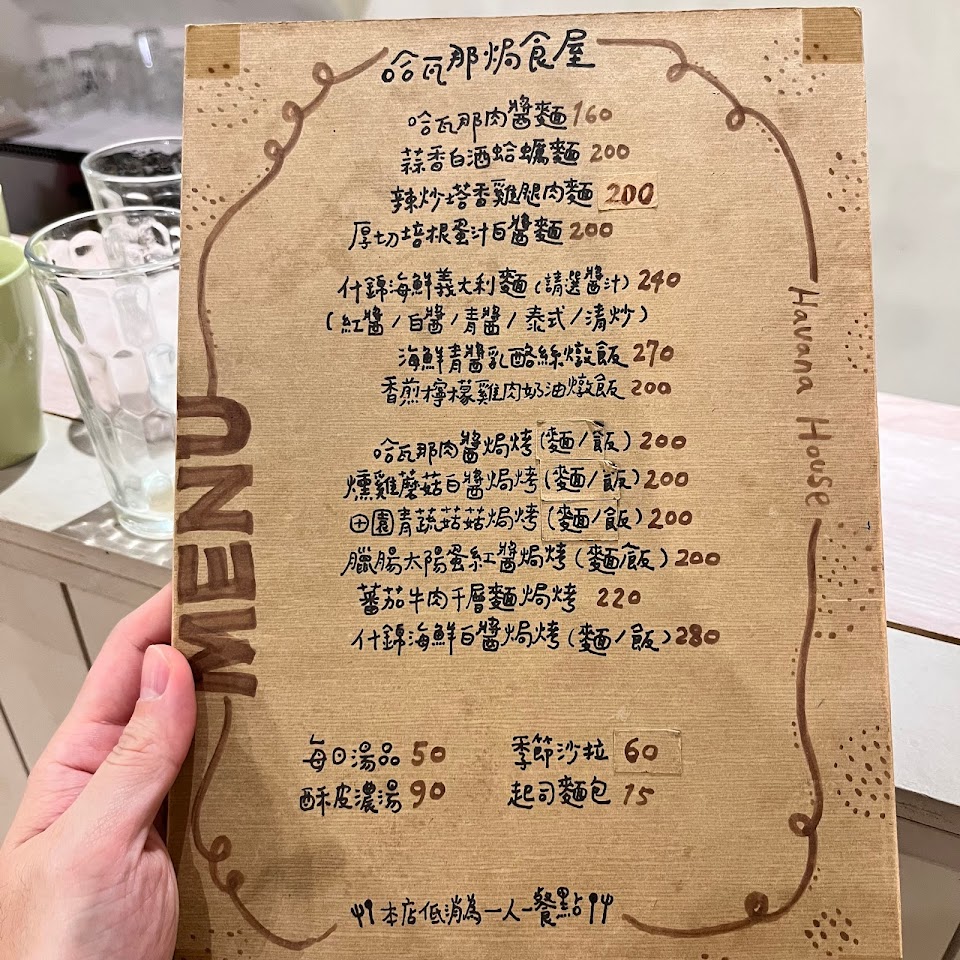 哈瓦那焗食屋
哈瓦那肉醬麵 160
蒜香白酒蛤蠣麵 200
辣炒塔香雞腿肉麵 200
厚切培根蛋汁白醬麵 200
什錦海鮮義大利麵 (請選醬汁) 240
(紅醬/白醬/青醬/泰式/清炒)
海鮮青醬乳酪絲燉飯 270
香煎檸檬雞肉奶油燉飯 200
哈瓦那肉醬焗烤 (麵/飯) 200
燻雞蘑菇白醬焗烤 (麵/飯) 200
田園青蔬菇菇焗烤 (麵/飯) 200
臘腸太陽蛋紅醬焗烤 (麵/飯) 200
蕃茄牛肉千層麵焗烤 220
什錦海鮮白醬焗烤 (麵/飯) 280
每日湯品 50 季節沙拉 60
酥皮濃湯 90 起司麵包 15
本店低消為一人一餐點
MENU
Havana House